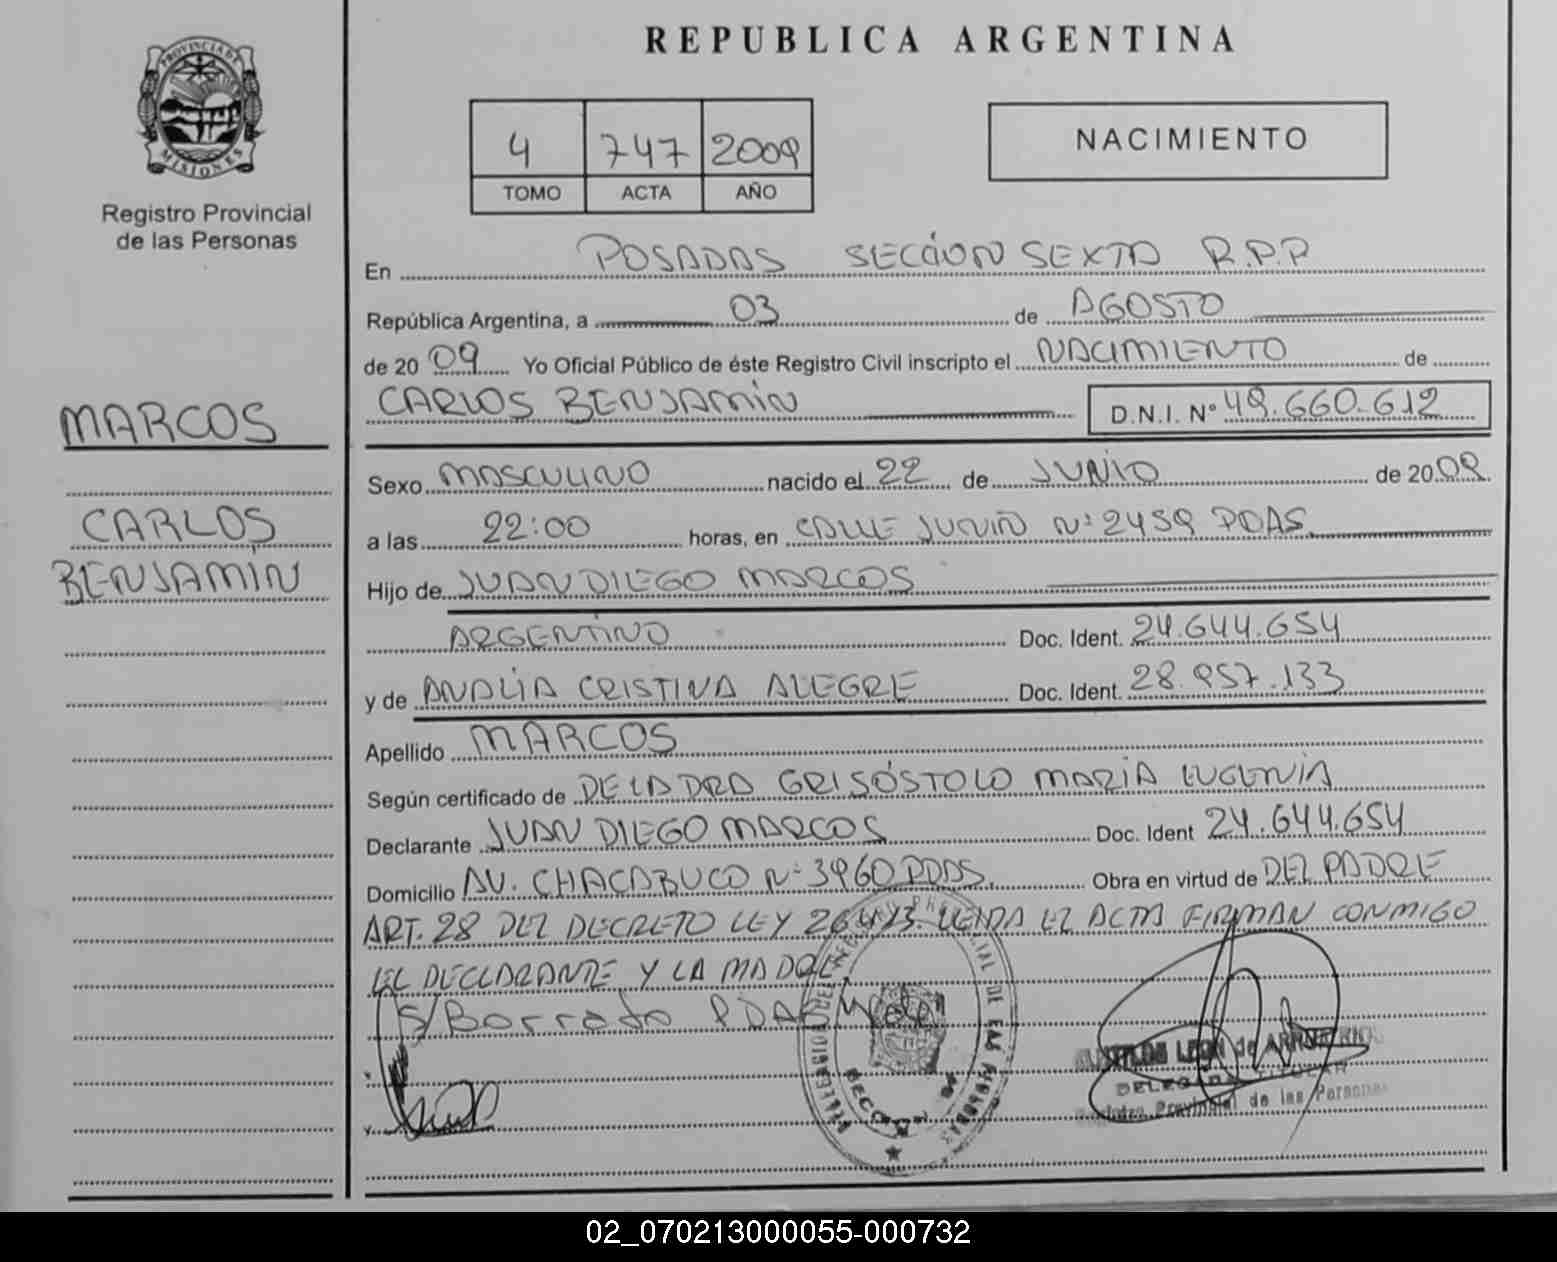 REPUBLICA ARGENTINA
PROVINCIA DE
MISIONES
Registro Provincial
de las Personas
4 747 2009
TOMO ACTA AÑO
NACIMIENTO
En POSADAS SECCIÓN SEXTA R.P.P
República Argentina, a 03 de AGOSTO
de 2009 Yo Oficial Público de éste Registro Civil inscripto el NACIMIENTO de
CARLOS BENJAMÍN D.N.I. Nº 49.660.612
MARCOS
CARLOS
BENJAMIN
Sexo MASCULINO nacido el 22 de JUNIO de 2009
a las 22:00 horas, en CALLE JUNIN Nº 2459 PDAS.
Hijo de JUAN DIEGO MARCOS
ARGENTINO Doc. Ident. 24.644.654
y de ANALIA CRISTINA ALEGRE Doc. Ident. 28.957.133
Apellido MARCOS
Según certificado de DE LA DRA GRISÓSTOLO MARÍA EUGENIA
Declarante JUAN DIEGO MARCOS Doc. Ident 24.644.654
Domicilio AV. CHACABUCO Nº 3960 PDAS. Obra en virtud de DEL PADRE
ART. 28 DEL DECRETO LEY 26.413. LEIDA EL ACTA FIRMAN CONMIGO
EL DECLARANTE Y LA MADRE
S/Borrado PDAS Vale
LEON de
Registro Provincial de las Personas
02_070213000055-000732